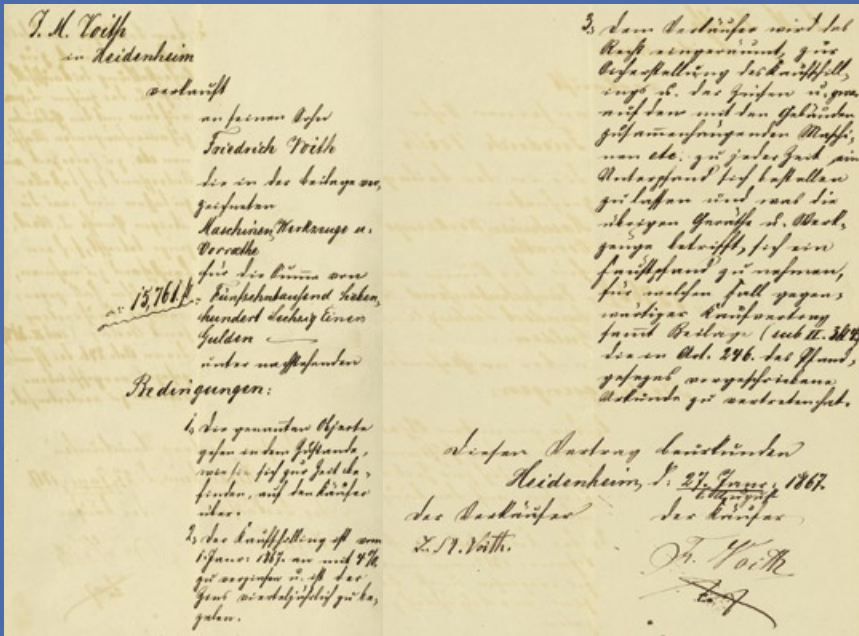 J. M. Voith
in Heidenheim
verkauft
an seinen Sohn
Friedrich Voith
die in der Beilage ver-
zeichneten
Maschinen, Werkzeuge u.
Vorräthe
für die Summe von
15,761 fl. Fünfzehntausend Sieben-
hundert Sechzig Einen
Gulden
unter nachstehenden
Bedingungen:
1, Die genannten Objecte
gehen in dem Zustande,
wie sie sich zur Zeit be-
finden, auf den Käufer
über.
2, Der Kaufschilling ist vom
1. Janr. 1867. an mit 4 %
zu verzinsen u. ist der
Zins vierteljährlich zu be-
zahlen.
3, Dem Verkäufer wird das
Recht eingeräumt, zur
Sicherstellung des Kaufschill-
ings u. der Zinsen u. zwar
auf den mit den Gebäuden
zusammenhängenden Maschi-
nen etc. zu jeder Zeit ein
Unterpfand sich bestellen
zu lassen und was die
übrigen Geräthe u. Werk-
zeuge betrifft, sich ein
Faustpfand zu nehmen,
für welchen Fall gegen-
wärtiger Kaufvertrag
samt Beilage (sub II.
die in Art. 246. des Pfand-
gesezes vorgeschriebene
Urkunde zu vertreten hat.
Diesen Vertrag beurkunden
Heidenheim, d. 27. Janr. 1867.
August
der Verkäufer
der Käufer
J. M. Voith.
Fr. Voith